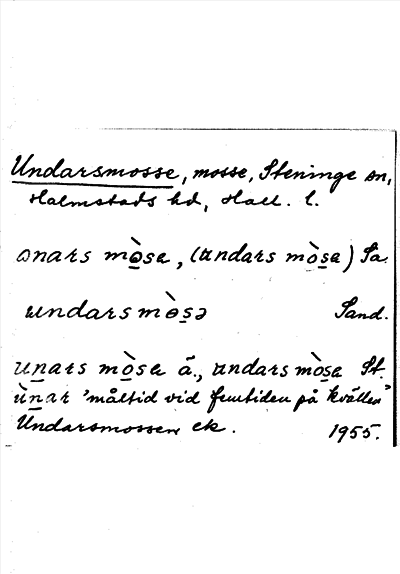 Undarsmosse, mosse, Steninge sn,
Halmstads hd, Hall. l.
ɷnars mò̱sa, (ɑndars mò̱sa) Sa.
undarsmò̱sə Sand.
u̱nars mò̱sa ä., ɑndars mò̱sa St.
ù̱nar "måltid vid femtiden på kvällen"
Undarsmossen ek. 1955.